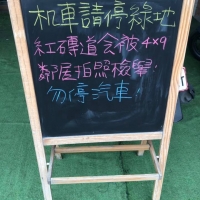 机車請停綠地
紅磚道会被4x9
鄰居拍照檢舉!
勿停汽車!